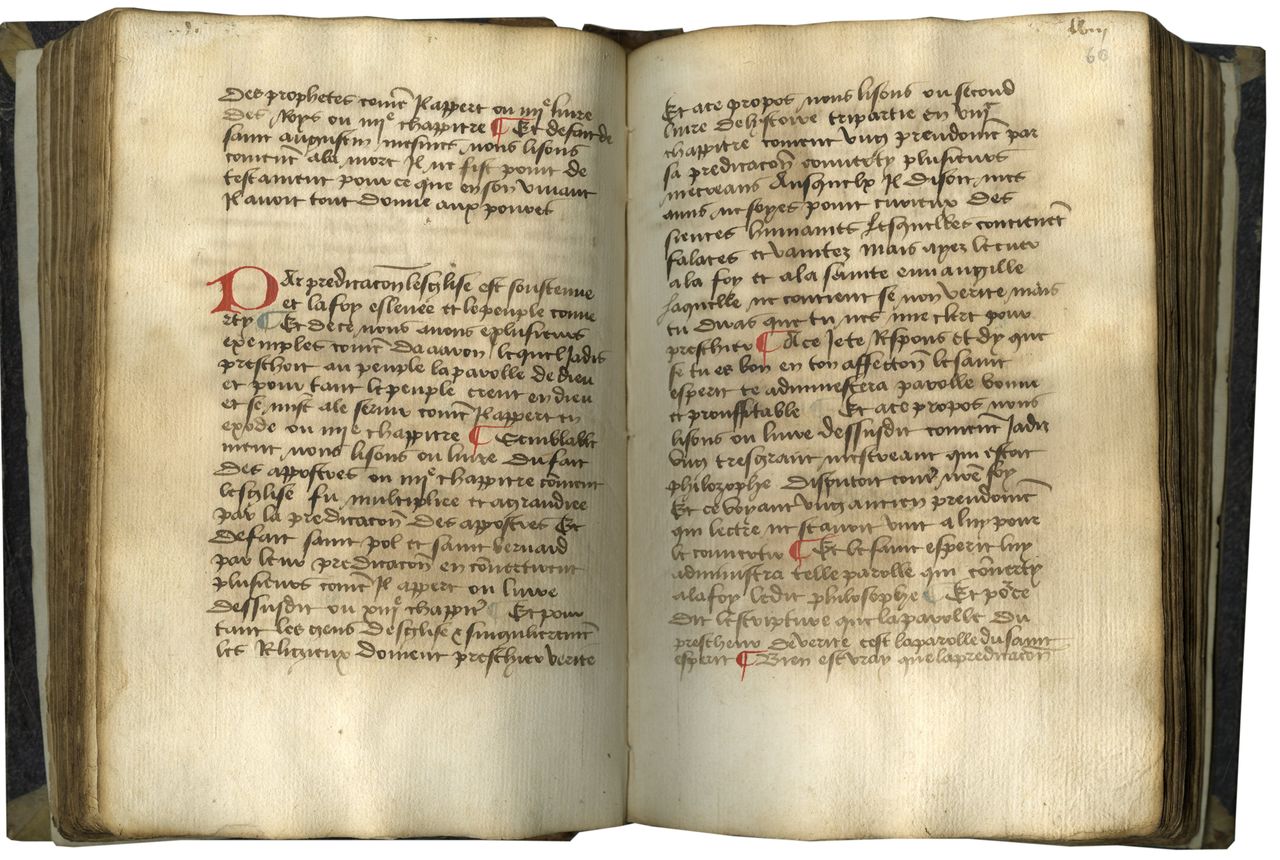 des prophetes com̃e Il appert ou iiiie liure
des Roys ou iiiie chappitre ¶ Et de fait de
saint augustin mesmes nous lisons
com̃ent a la mort Il ne fist point de
testament pour ce que en son viuant
Il auoit tout donne aux poures
PAr predicacõn lesglise est soustenue
et la foy esleuee et le peuple conue
rty ¶ Et de ce nous auons plusieurs
exemples com̃e da aaron lequel Jadis
preschoit au peuple la parolle de dieu
et pour tant le peuple creut en dieu
et se mist a le seruir com̃e Il appert en
exode ou iiiie chappitre ¶ Semblable
ment nous lisons ou liure du fait
des appostres ou iiiie chappitre com̃ent
lesglise fu multipliee et agrandiee
par la predicacõn des appostres Et
de fait saint pol et saint bernard
par leur predicacõn en conuertirent
plusieurs com̃e Il appert ou liure
dessusdit ou xiiie chappitre Et pour
tant les gens desglise et singulierem̃et
les Religieux doiuent preschier verite
lxviii
68
Et a ce propos nous lisons ou second
liure de listoire tripartie en viii
chappitre com̃ent vng preudom̃e par
sa predicacõn conuerty plusieurs
mecreans Ausquelx Il disoit mes
amis ne soyes point curieux des
siences humaines Lesquelles contienent
falaces et vanitez mais ayez le cuer
a la foy et a la sainte euuangille
Laquelle ne contient se non verite mais
tu diras que tu nes mie clerc pour
preschier ¶ A ce Je te Respons Et dy que
se tu es bon en ton affectõn le saint
esperit te administera parolle bonne
et prouffitable Et a ce propos nous
lisons ou liure dessusdit com̃ent Jadis
vng tresgrant mescreant qui estoit
philozophe disputoit contre nr̃e foy
Et ce voyant vng ancien preudom̃e
qui lectre ne scauoit vint a luy pour
le conuertir ¶ Et le saint esperit luy
administra telle parolle qui cõuerty
a la foy ledit philosophe Et pource
dit lescripture que la parolle du
prescheur de verite cest la parolle du saint
esperit ¶ Bien est vray que la predicacõn